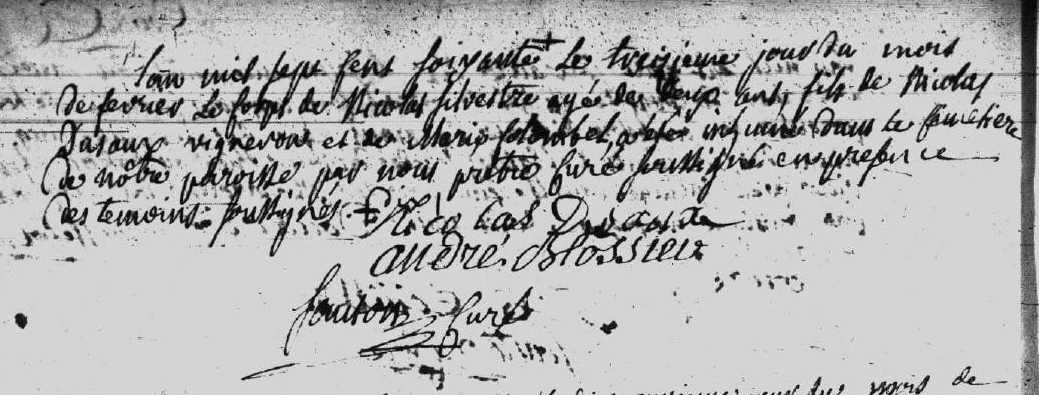 Lan mil sept sens soixante + Le treizieme jour du mois
de fevrier Le corps de Nicolas silvestre agé de deux ans, fils de Nicolas
Dasaux vigneron et de Marie Colombel, a été inhumé dans le cemetiere
de nôtre paroisse par nous prêtre Curé soussigné en presence
des temoins soussignés + Nicolas Dasaux
andré Blossier
Curé
mois de